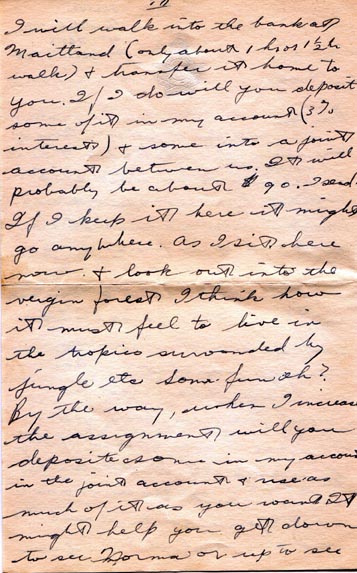 I will walk into the bank at
Maitland (only about 1 hr or 1½ hr
walk) & transfer it home to
you. If I do will you deposit
some of it in my account (3%
interest) & some into a joint
account between us. It will
probably be about $90. I send.
If I keep it here it might
go anywhere. As I sit here
now & look out into the
vergin forest I think how
it must feel to live in
the tropics surrounded by
jungle etc Some fun eh?
By the way, when I increase
the assignment will you
deposite some in my account
in the joint account & use as
much of it as you want It
might help you get down
to see Norma or up to see